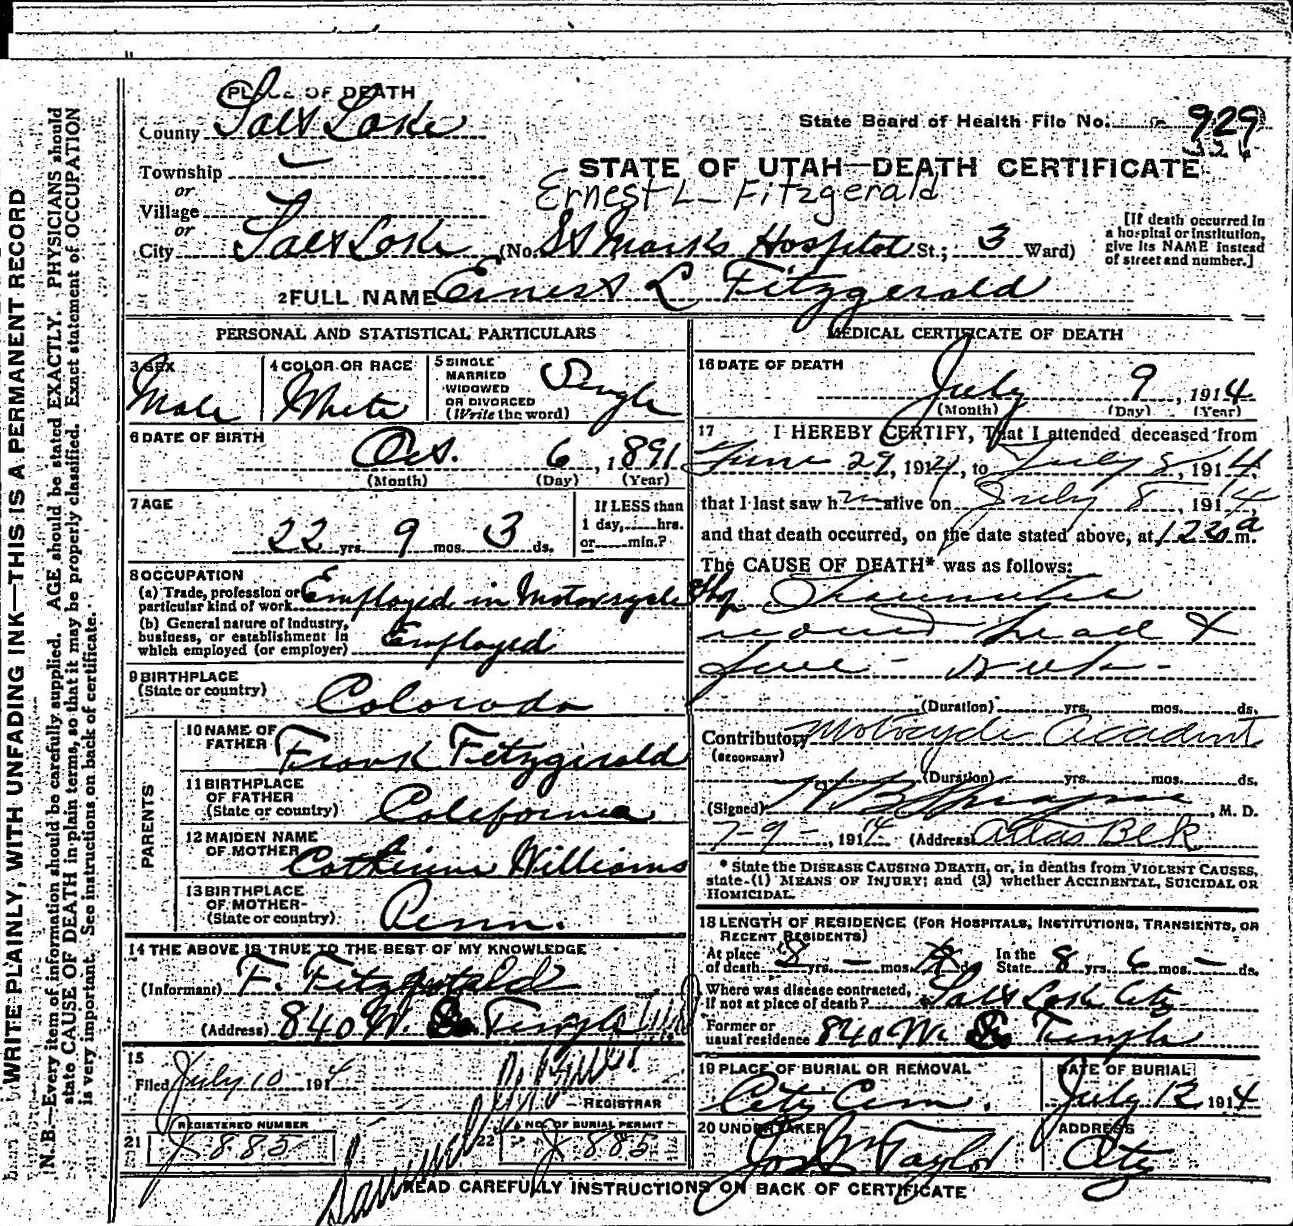 PLACE OF DEATH
County Salt Lake
State Board of Health File No. 929
Township
STATE OF UTAH—DEATH CERTIFICATE
or
Ernest L Fitzgerald
Village
or
City Salt Lake (No. St Marks Hospital St.; 3 Ward)
[If death occurred in
a hospital or institution,
give its NAME instead
of street and number.]
2 FULL NAME Ernest L Fitzgerald
PERSONAL AND STATISTICAL PARTICULARS
3 SEX
Male
4 COLOR OR RACE
White
5 SINGLE
MARRIED
WIDOWED
OR DIVORCED
(Write the word)
Single
6 DATE OF BIRTH
Oct. 6, 1891
(Month) (Day) (Year)
7 AGE
22 yrs. 9 mos. 3 ds.
If LESS than
1 day, hrs.
or min.?
8 OCCUPATION
(a) Trade, profession or
particular kind of work Employed in Motorcycle Shop
(b) General nature of industry,
business, or establishment in
which employed (or employer) Employed
9 BIRTHPLACE
(State or country) Colorado
PARENTS
10 NAME OF
FATHER Frank Fitzgerald
11 BIRTHPLACE
OF FATHER
(State or country) California
12 MAIDEN NAME
OF MOTHER Catherine Williams
13 BIRTHPLACE
OF MOTHER
(State or country) Penn.
14 THE ABOVE IS TRUE TO THE BEST OF MY KNOWLEDGE
(Informant) F. Fitzgerald
(Address) 840 W. So Temple
15
Filed July 10 1914
REGISTRAR
REGISTERED NUMBER
21 J 885
NO. OF BURIAL PERMIT
22 J 885
MEDICAL CERTIFICATE OF DEATH
16 DATE OF DEATH
July 9, 1914
(Month) (Day) (Year)
17 I HEREBY CERTIFY, That I attended deceased from
June 29, 1914, to July 8, 1914
that I last saw him alive on July 8 1914,
and that death occurred, on the date stated above, at 1230 a m.
The CAUSE OF DEATH* was as follows:
wound head &
(Duration) yrs. mos. ds.
Contributory Motorcycle Accident
(SECONDARY)
(Duration) yrs. mos. ds.
(Signed) M. D.
7-9-, 1914 (Address) Atlas Blk
* State the DISEASE CAUSING DEATH, or, in deaths from VIOLENT CAUSES,
state (1) MEANS OF INJURY; and (2) whether ACCIDENTAL, SUICIDAL OR
HOMICIDAL.
18 LENGTH OF RESIDENCE (FOR HOSPITALS, INSTITUTIONS, TRANSIENTS, OR
RECENT RESIDENTS)
At place
of death 8 yrs. – mos. ds. In the
State 8 yrs. 6 mos. – ds.
Where was disease contracted,
if not at place of death? Salt Lake City
Former or
usual residence 840 W. So Temple
19 PLACE OF BURIAL OR REMOVAL
City Cem.
DATE OF BURIAL
July 12 1914
20 UNDERTAKER
Jos Wm Taylor
ADDRESS
City
READ CAREFULLY INSTRUCTIONS ON BACK OF CERTIFICATE
WRITE PLAINLY, WITH UNFADING INK—THIS IS A PERMANENT RECORD
N. B.—Every item of information should be carefully supplied. AGE should be stated EXACTLY. PHYSICIANS should
state CAUSE OF DEATH in plain terms, so that it may be properly classified. Exact statement of OCCUPATION
is very important. See instructions on back of certificate.